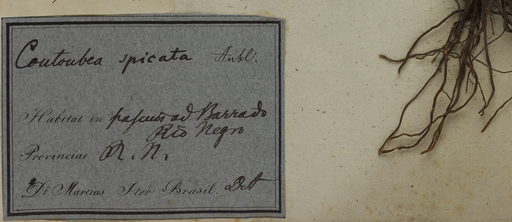 Coutoubea spicata Aubl.
Habitat in pascuis ad Barra do
Rio Negro
Provinciae R. N.
Dr Martius Iter Brasil. Oct